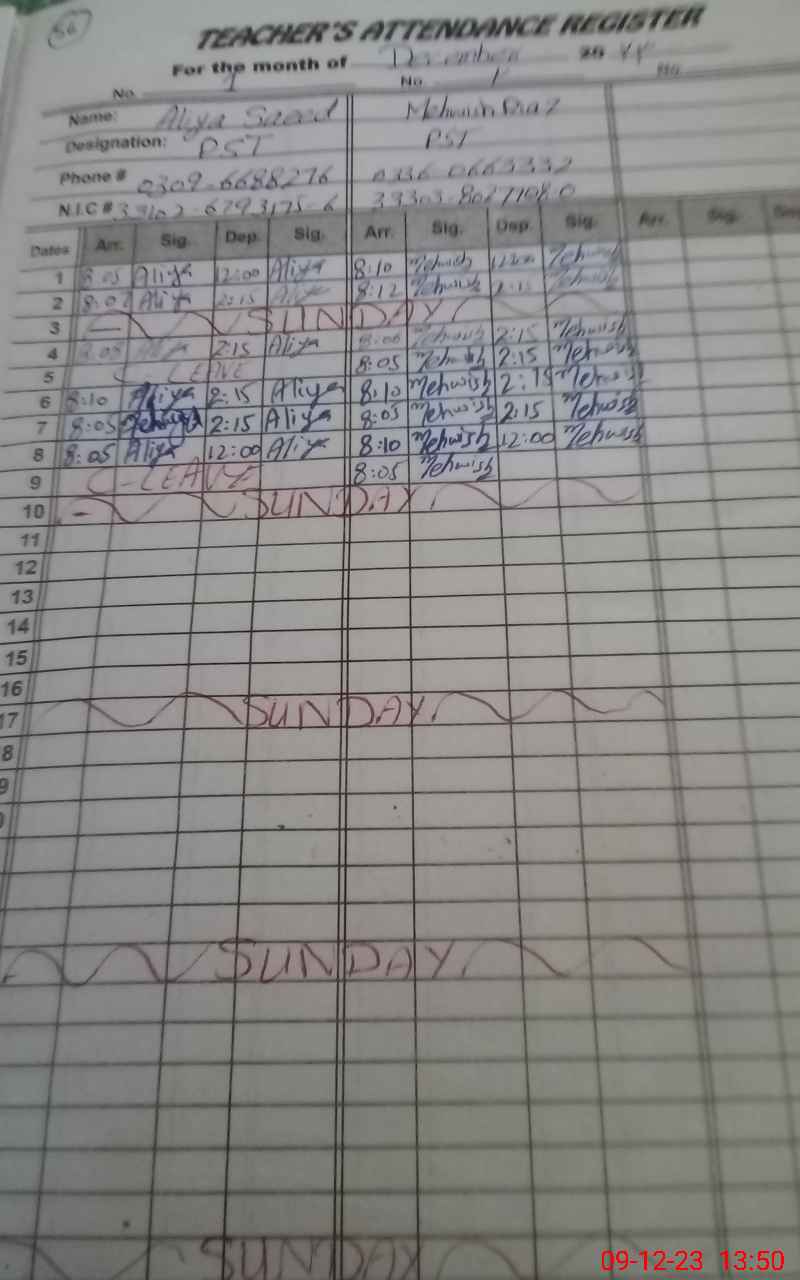 56
TEACHER'S ATTENDANCE REGISTER
For the month of December 20
No. 1 No. 1 No.
Name: Aliya Saeed Mehwish
Designation: PST PST
Phone # 0309-6688276 0336 0663332
N.I.C #
Dates Arr. Sig. Dep. Sig. Arr. Sig. Dep. Sig. Arr. Sig.
1 8:05 Aliya 12:00 Aliya 8:10 Mehwish Mehwish
2 Aliya 2:15 8:12 Mehwish Mehwish
3 SUNDAY
4 2:15 Aliya Mehwish 2:15 Mehwish
5 C-LEAVE 8:05 Mehwish 2:15 Mehwish
6 8:10 Aliya 2:15 Aliya 8:10 Mehwish 2:15 Mehwish
7 8:05 2:15 Aliya 8:05 Mehwish 2:15 Mehwish
8 8:05 Aliya 12:00 Aliya 8:10 Mehwish 12:00 Mehwish
9 C-LEAVE 8:05 Mehwish
10 SUNDAY
11
12
13
14
15
16
17 SUNDAY
8
9
SUNDAY
SUNDAY
09-12-23 13:50